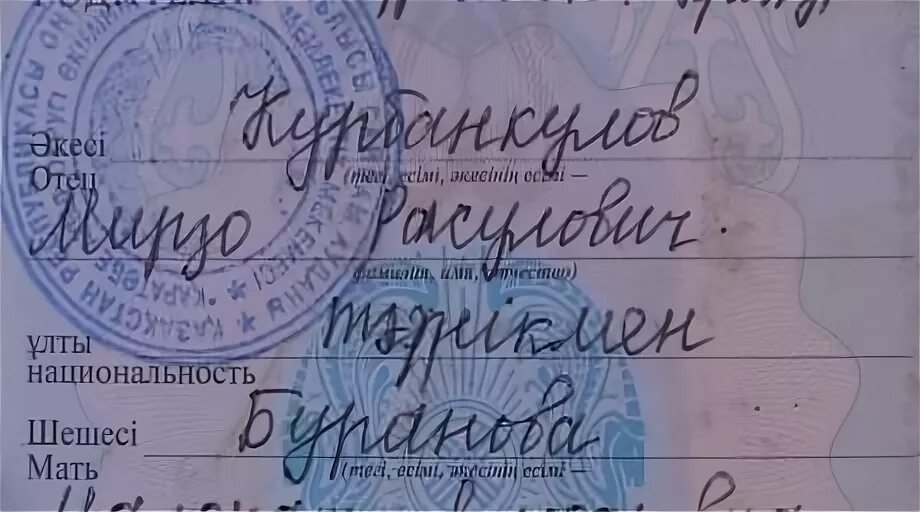 Әкесі Курбанкулов
Отец (тегі, есімі, әкесінің есімі —
Мирзо Расулович.
фамилия, имя, отчество)
ұлты түрікмен
национальность
Шешесі Буранова
Мать (тегі, есімі, әкесінің есімі —